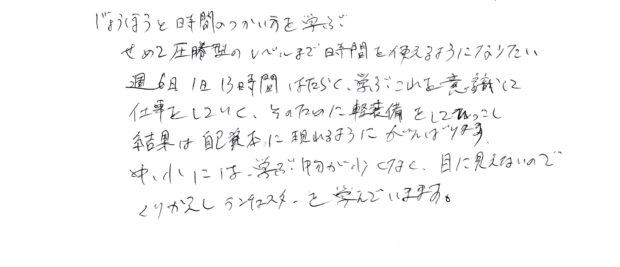 じょうほうと時間のつかい方を学ぶ
せめて圧勝型のレベルまで時間を使えるようになりたい
週6日1日13時間はたらく、学ぶこれを意識して
仕事をしていく、そのために軽装備をして
結果は自己資本に現れるようにがんばります
中、小には学ぶ物が少くなく、目に見えないので
くりかえしランチェスターを学んでいまます。